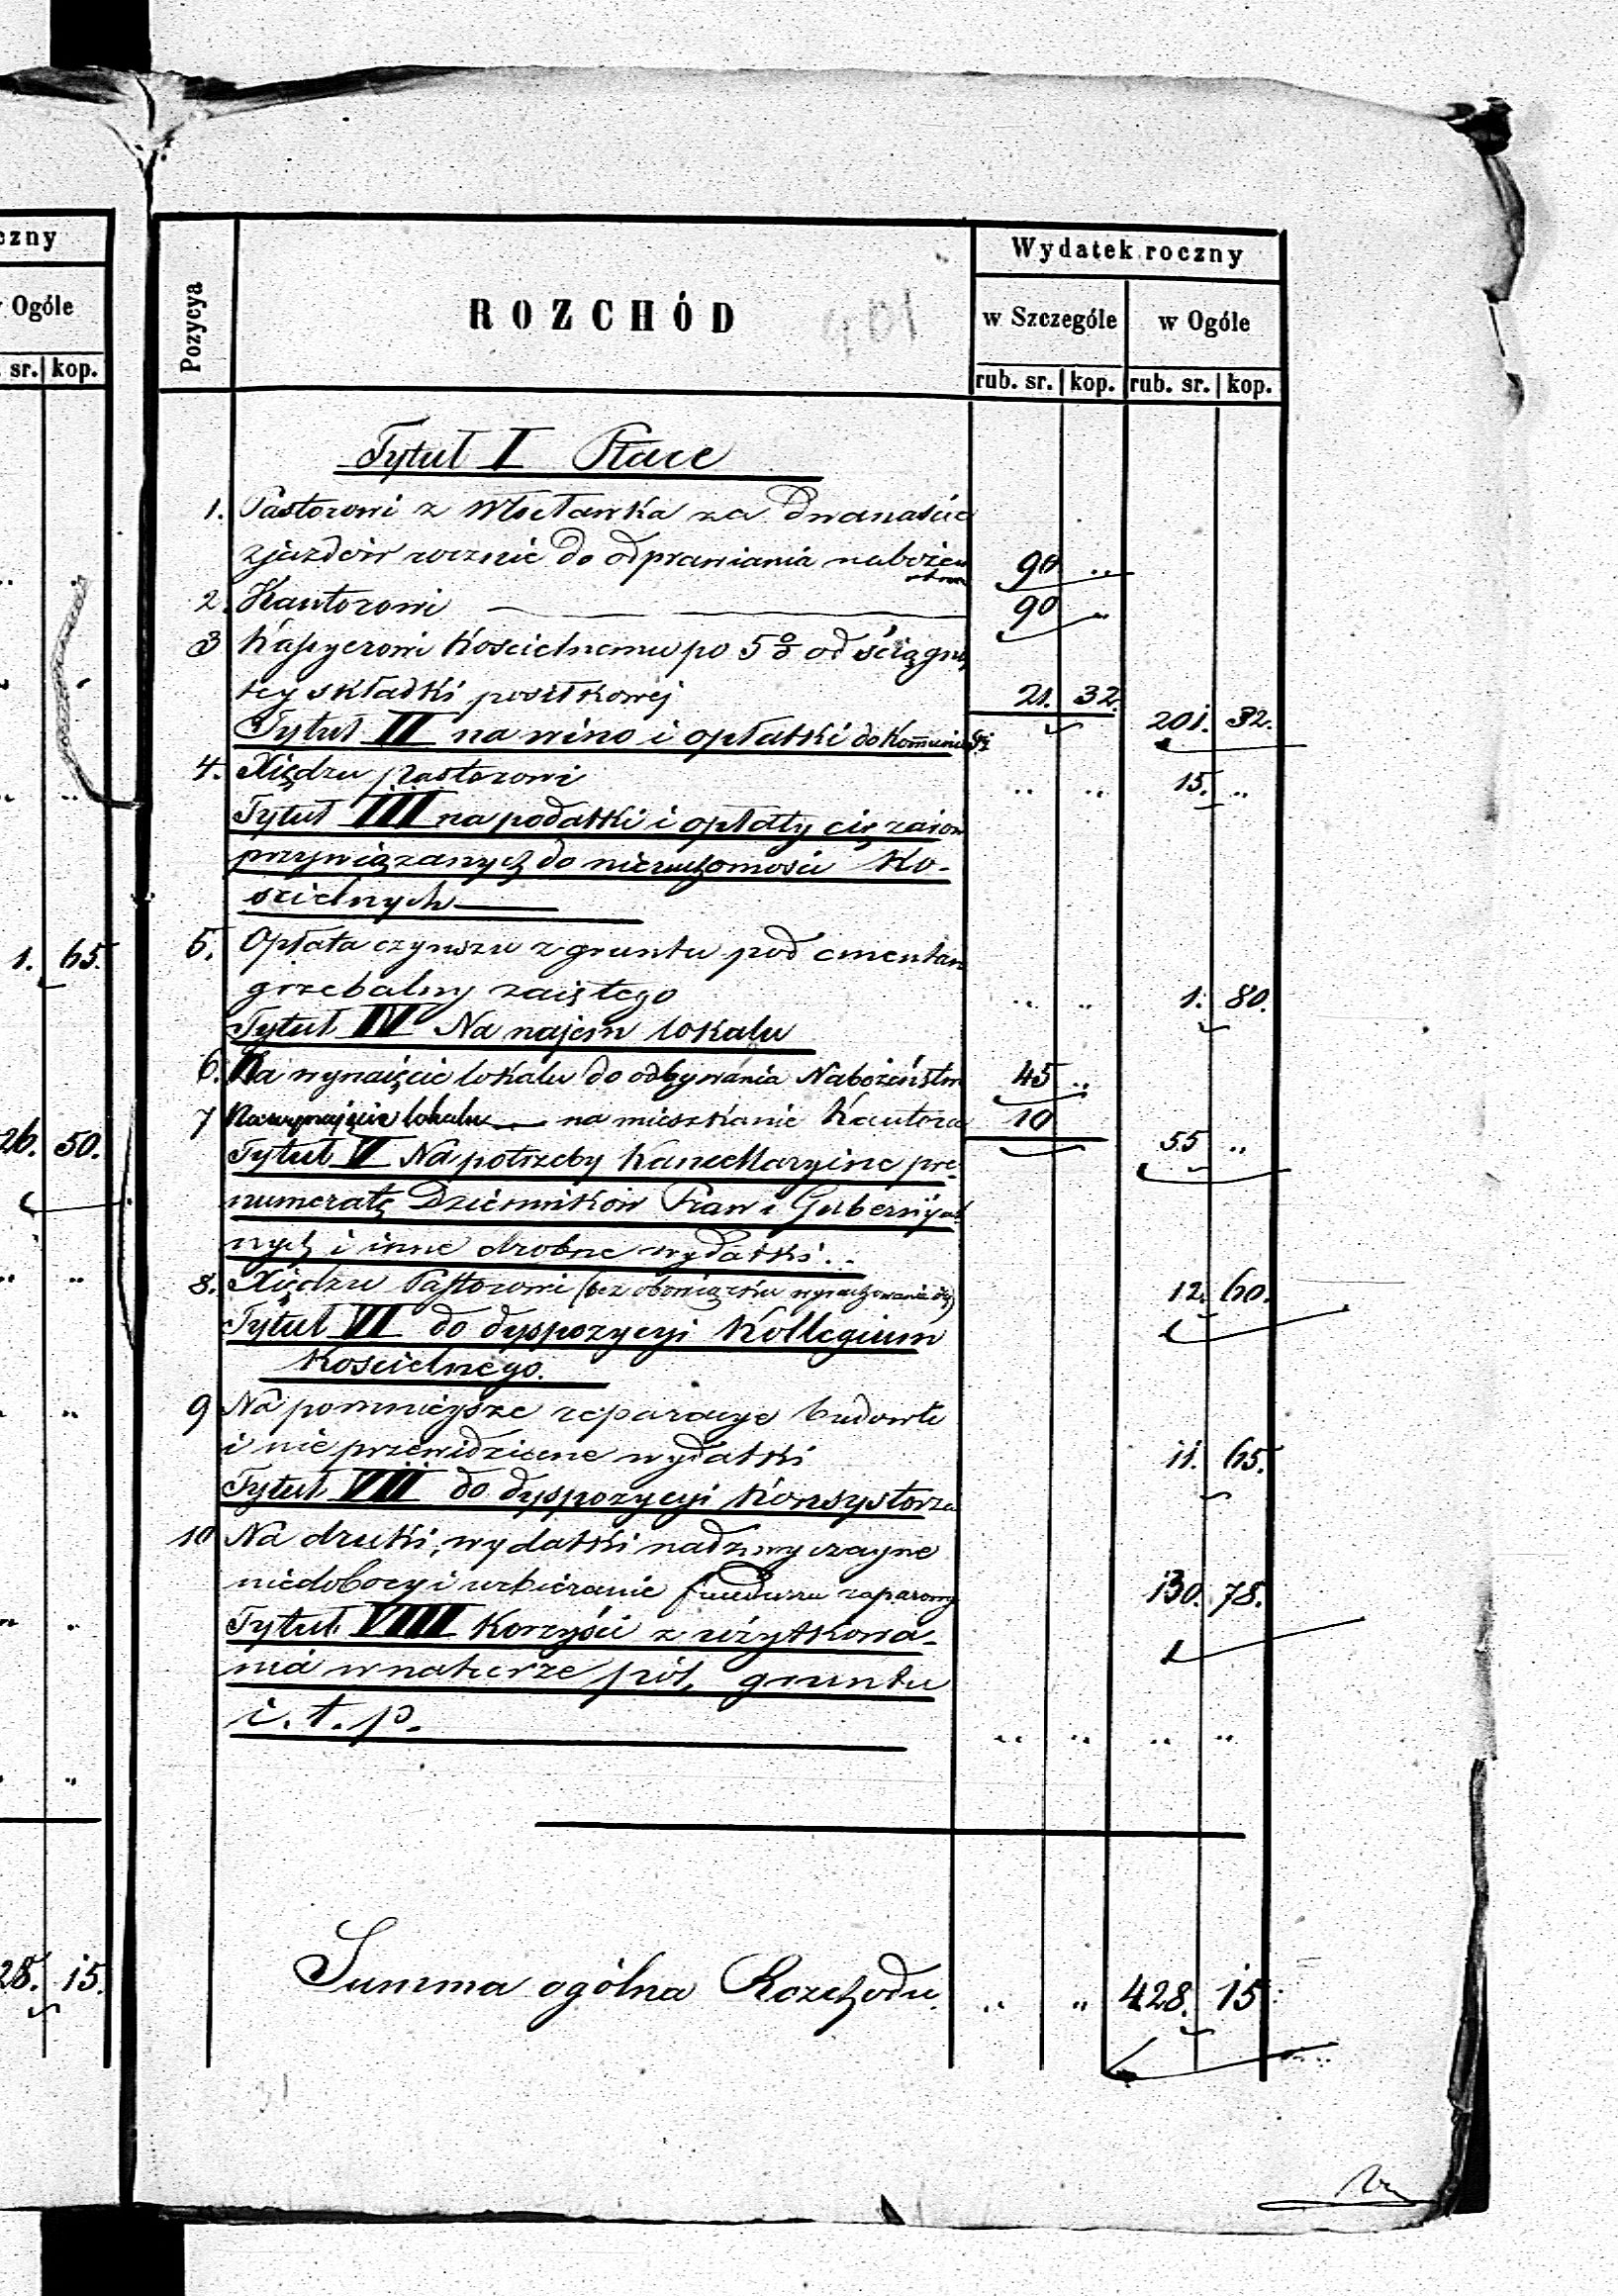 czny
Ogóle
sr. kop.
1. 65.
26. 50.
28. 15.
Pozycya
ROZCHÓD
401
Wydatek roczny
w Szczególe w Ogóle
rub. sr. kop. rub. sr. kop.
Tytuł I Płace
1. Pastorowi z Włocławka za dwanaście
zjazdów rocznie do odprawiania nabożeń 90 ..
stwa
2. Kantorowi 90 ..
3 Kassyerowi Kościelnemu po 5% od ściągnię
tey składki posiłkowej 21. 32. 201. 32.
Tytuł II na wino i opłatki do Kommunii
4. Xiędzu Pastorowi .. .. 15. ..
Tytuł III na podatki i opłaty ciężarów
przywiązanych do nieruchomości Ko-
ścielnych
5. Opłata czynszu z gruntu pod cmentarz
grzebalny zajętego .. .. 1. 80.
Tytuł IV Na najem lokalu
6. Na wynajęcie lokalu do odbywania Nabożeństw 45 ..
7 Na wynajęcie lokalu na mieszkanie Kantora 10 55 ..
Tytuł V Na potrzeby Kancellaryine pre-
numeratę Dzienników Praw i Gubernijal
nych i inne drobne wydatki ..
8. Xiędzu Pastorowi (bez obowiązku wyrachowania się) 12. 60.
Tytuł VI do dyspozycyi Kollegium
Kościelnego.
9 Na pomniejsze reparacye budowli
i nieprzewidziane wydatki 11. 65.
Tytuł VII do dyspozycyi Konsystorza
10 Na druki, wydatki nadzwyczayne
niedobory i uzbieranie funduszu zapasowy 130. 78.
Tytuł VIII Korzyści z użytkowa-
nia w naturze pól, gruntu
i. t. p. .. .. .. ..
Summa ogólna Rozchodu. .. .. 428. 15.